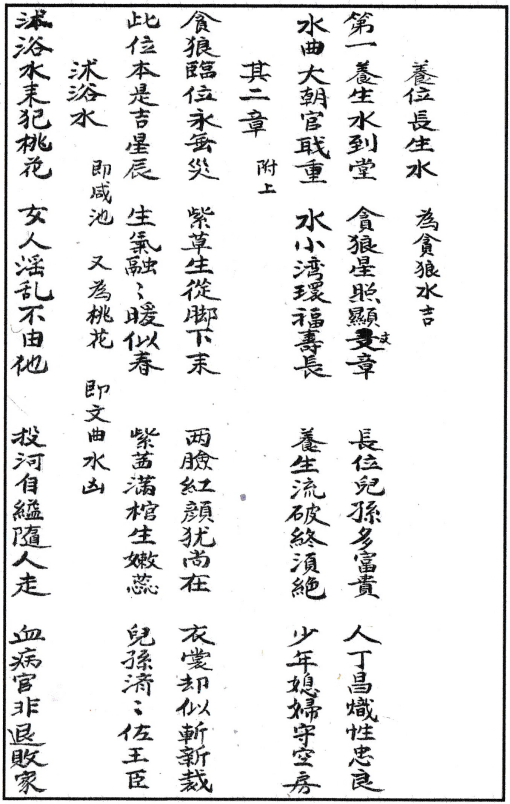 養位長生水　為貪狼水吉
第一養生水到堂　貪狼星照顯文章　長位兒孫多富貴　人丁昌熾性忠良
水曲大朝官職重　水小湾環福壽長　養生流破終須絕　少年媳婦守空房
其二章　附上
貪狼臨位永無災　紫草生從脚下来　两臉紅顏犹尚在　衣裳却似斬新裁
此位本是吉星辰　生氣融〻暖似春　紫茜滿棺生嫩蕊　兒孫濟〻佐王臣
沭浴水　即咸池　又為桃花　即文曲水凶
沭浴水来犯桃花　女人淫乱不由他　投河自縊隨人走　血病官非退敗家